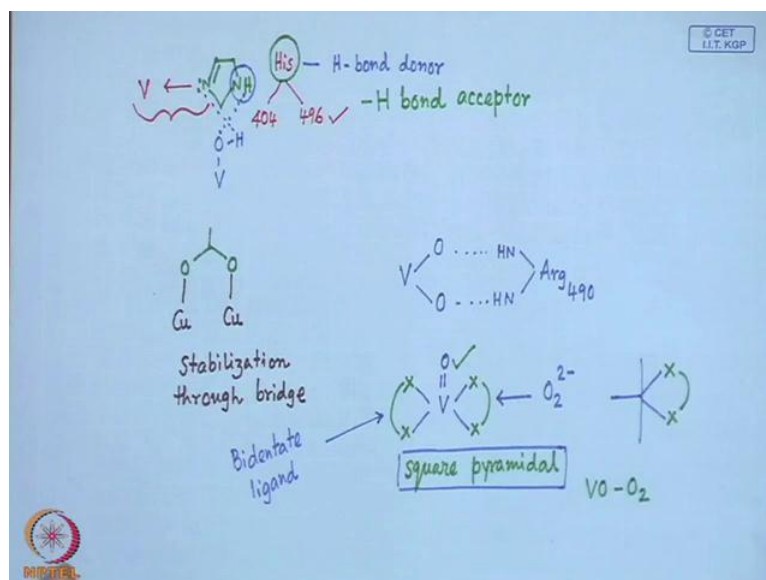 © CET
I.I.T. KGP
V ← :N NH His - H-bond donor
404 496 ✓ -H bond acceptor
O-H
V
O O
Cu Cu
Stabilization
through bridge
V O ..... HN Arg 490
O ..... HN
O ✓
X X
V ← O₂²⁻
X X
X
X
Bidentate
ligand
square pyramidal
VO-O₂
NPTEL